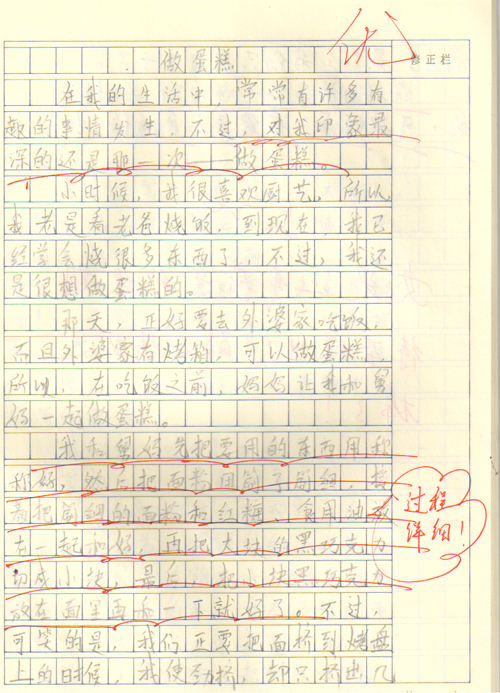 优
修正栏
做蛋糕
在我的生活中，常常有许多有
趣的事情发生，不过，对我印象最
深的还是那一次——做蛋糕。
小时候，我很喜欢厨艺，所以
我老是看老爸烧饭，到现在，我已
经学会烧很多东西了，不过，我还
是很想做蛋糕的。
那天，正好要去外婆家吃饭，
而且外婆家有烤箱，可以做蛋糕，
所以，在吃饭之前，妈妈让我和舅
妈一起做蛋糕。
我和舅妈先把要用的东西用秤
称好，然后把面粉用筛子筛细，接
着把筛细的面粉和红梅、食用油放
在一起和好，再把大块的黑巧克力
切成小块，最后，把小块黑巧克力
放在面里再和一下就好了。不过，
可笑的是，我们正要把面挤到烤盘
上的时候，我使劲挤，却只挤出几
过程
详细！